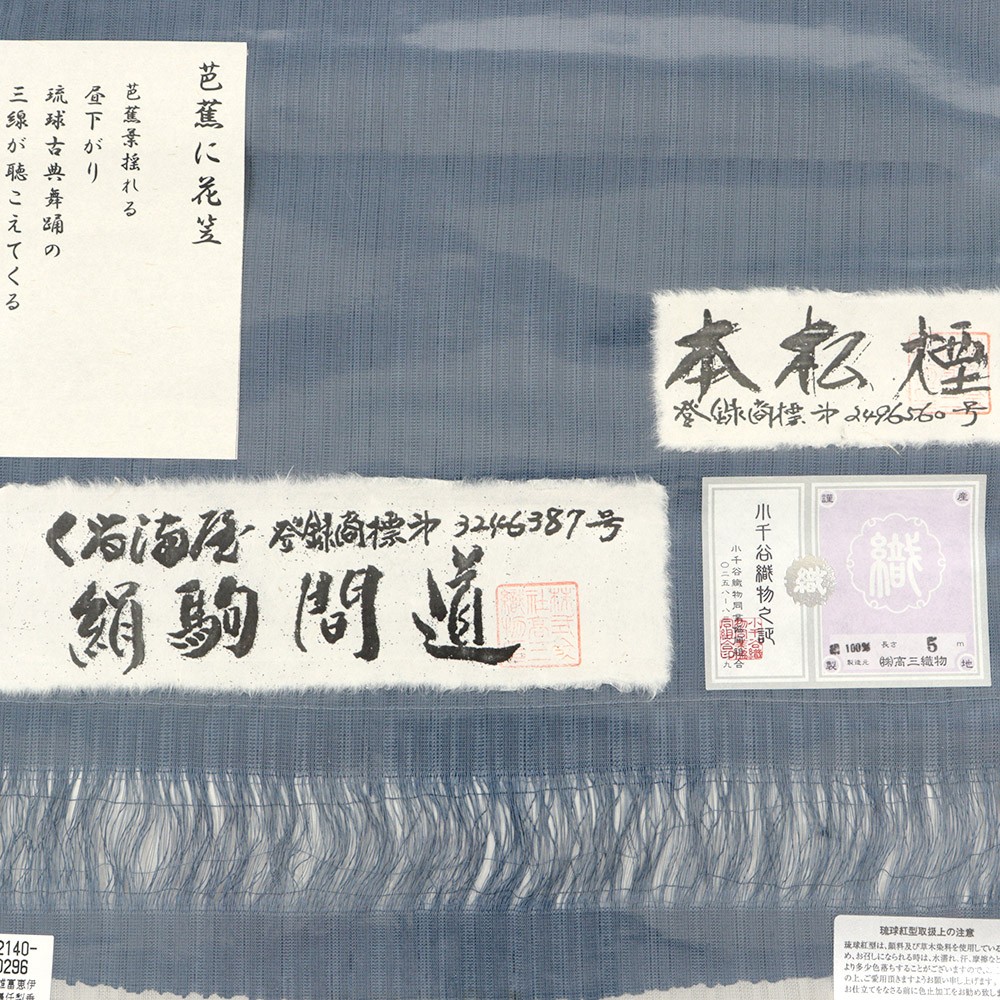 芭蕉に花笠
芭蕉葉揺れる
昼下がり
琉球古典舞踊の
三線が聴こえてくる
本松煙
登録商標第2496560号
登録商標第3246387号
絹駒間道
株式会社高三織物
小千谷織物之証
小千谷織物同業協同組合
謹
産
織
織
100%
長さ 5 m
製造元 ㈱高三織物
製
地
2140-
0296
琉球紅型取扱上の注意
琉球紅型は、顔料及び草木染料を使用している
め、お召しになられる時は、水濡れ、汗、摩擦な
より多少色落ちすることがございますので、
の上、ご愛用頂きますようお願い申し上げます。
お仕立てをなさる前に色止加工をお勧め致しま